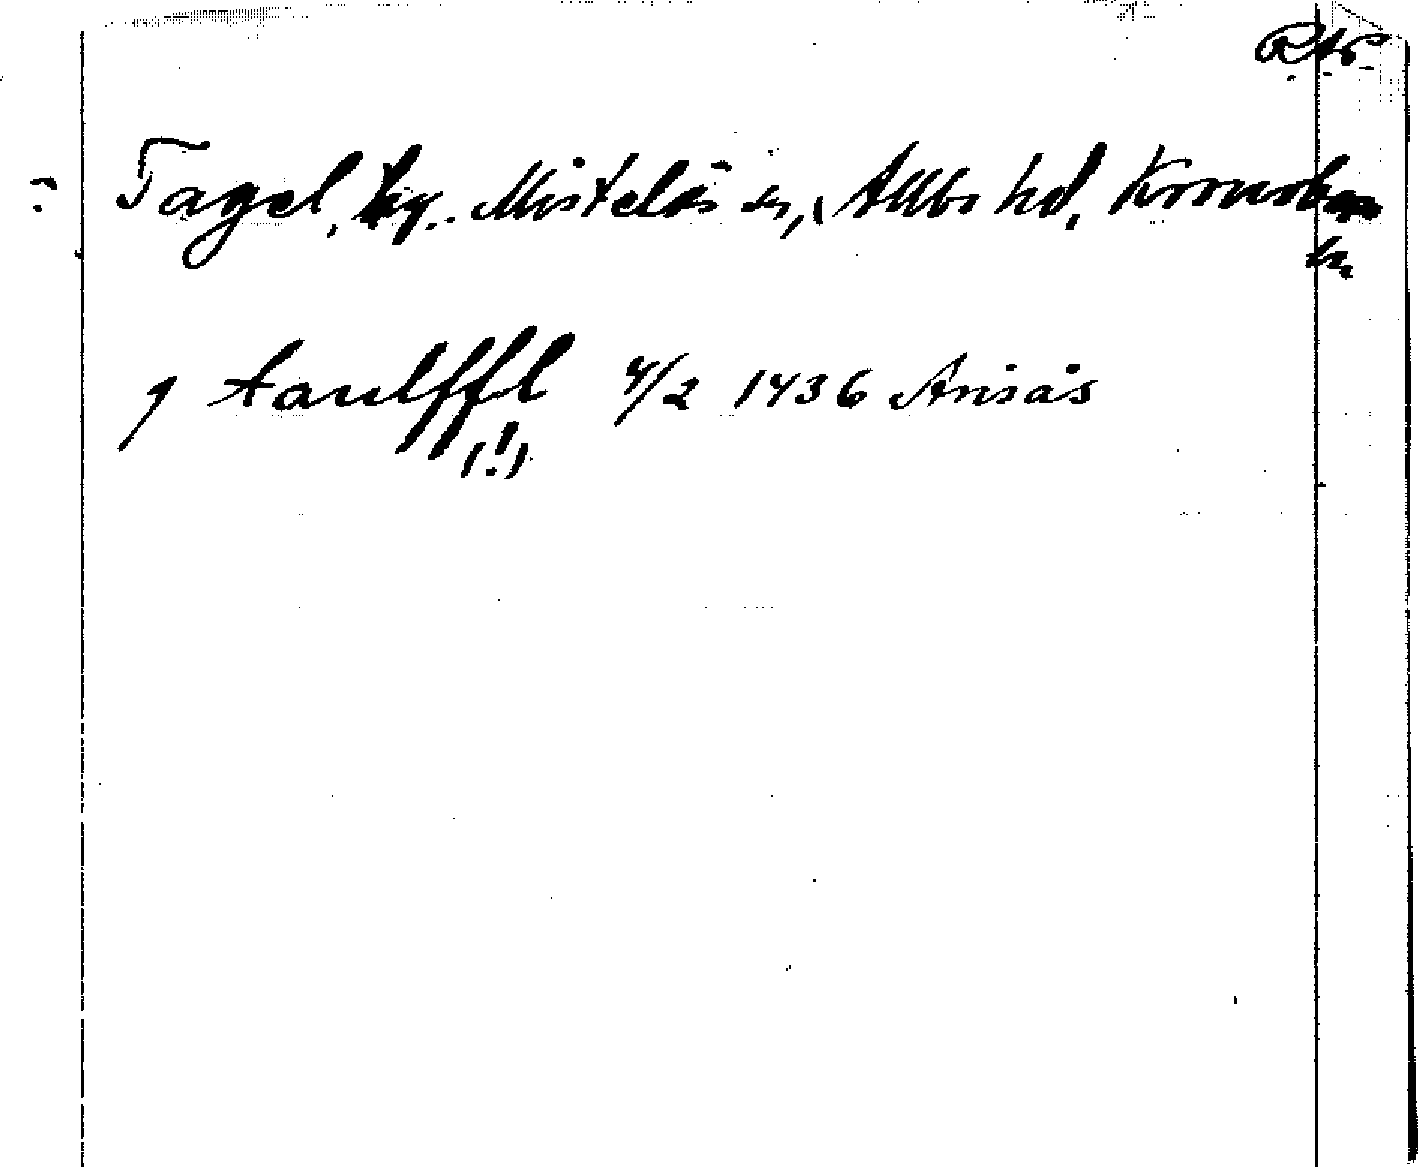 RAP
Tagel, by. Mistelås sn, Allbo hd, Kronob
ln
j taulffl 4/2 1436 Arisås
(!)